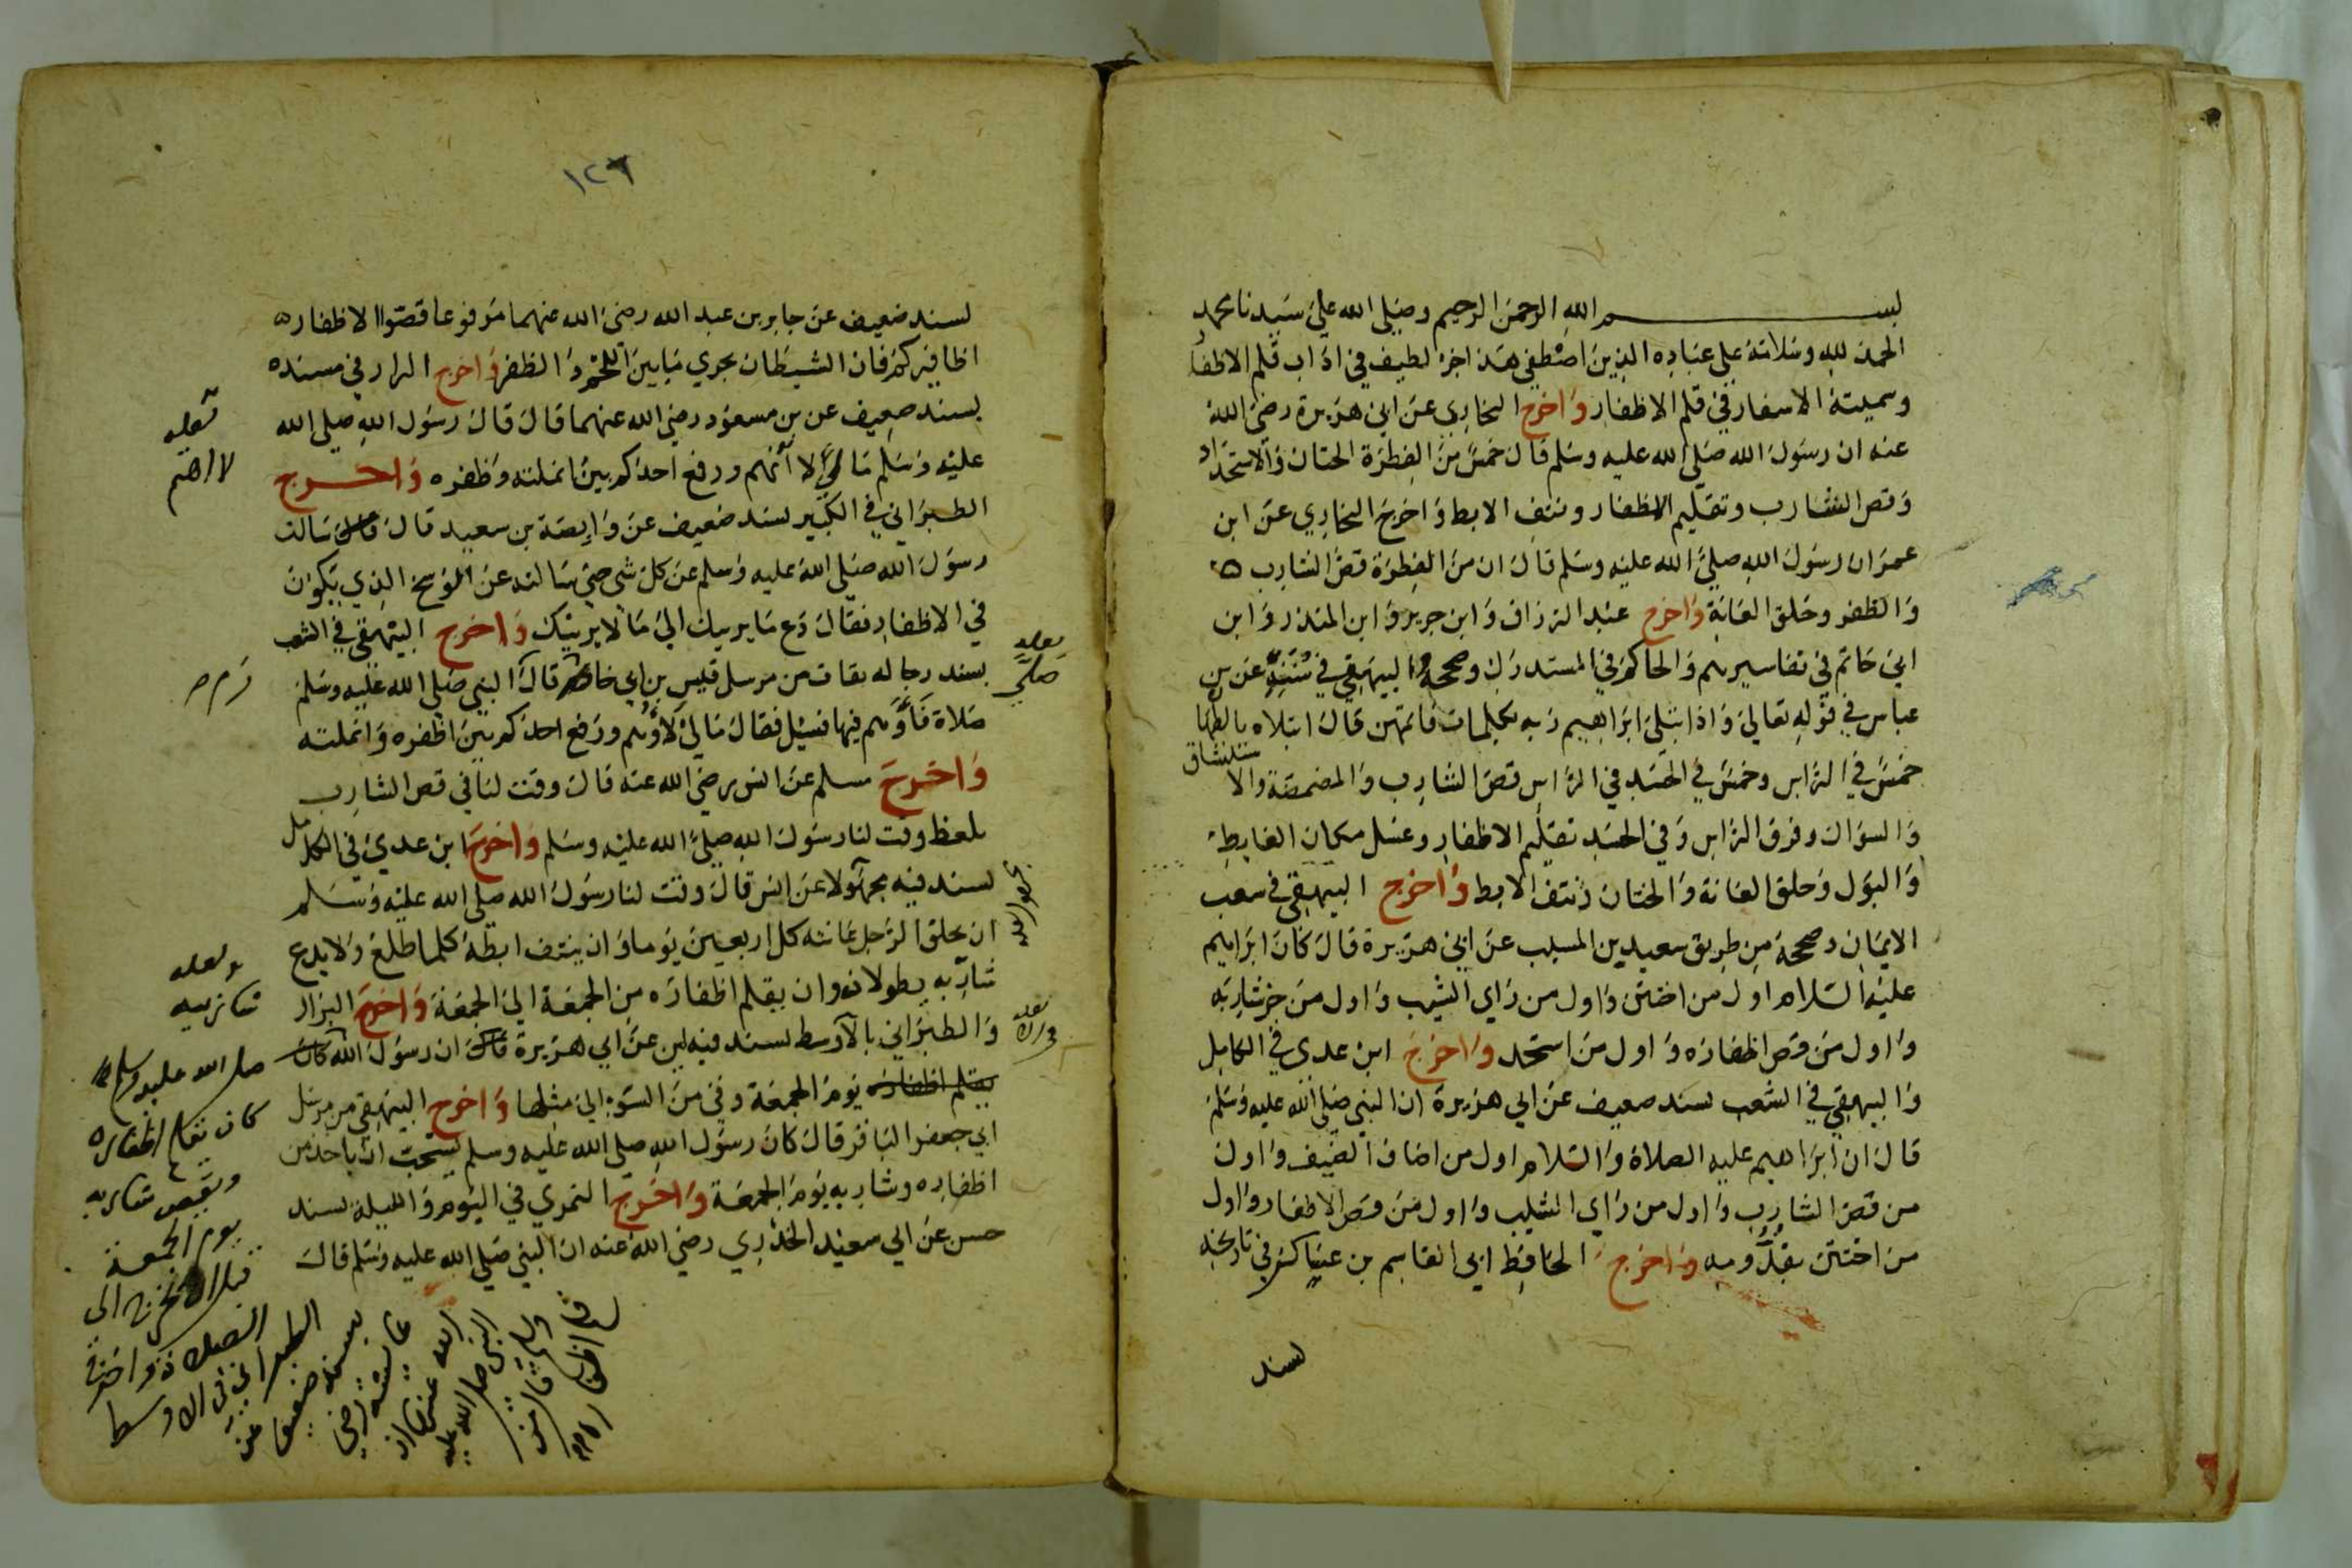 بسم الله الرحمن الرحيم وصلى الله على سيدنا محمد
الحمد لله وسلامه على عباده الذين اصطفى هذا جزء لطيف في اداب قلم الاظفار
وسميته الاسفار في قلم الاظفار واخرج البخاري عن ابي هريرة رضي الله
عنه ان رسول الله صلى الله عليه وسلم قال خمس من الفطرة الختان والاستحداد
وقص الشارب وتقليم الاظفار ونتف الابط واخرج البخاري عن ابن
عمر ان رسول الله صلى الله عليه وسلم قال ان من الفطرة قص الشارب
والظفر وحلق العانة واخرج عبد الرزاق وابن جرير وابن المنذر وابن
ابي حاتم في تفاسيرهم والحاكم في المستدرك وصححه والبيهقي في سننه عن بن
عباس في قوله تعالى واذا بتلى ابراهيم ربه بكلمات فاتمهن قال ابتلاه بالطهارة
خمس في الراس وخمس في الجسد في الراس قص الشارب والمضمضة والاستنشاق
والسواك وفرق الراس وفي الجسد تقليم الاظفار وغسل مكان الغايط
والبول وحلق العانة والختان ونتف الابط واخرج البيهقي في شعب
الايمان وصححه من طريق سعيد بن المسيب عن ابي هريرة قال كان ابراهيم
عليه السلام اول من اختتن واول من راي الشيب واول من جز شاربه
واول من قص اظفاره واول من استحد واخرج ابن عدي في الكامل
والبيهقي في الشعب بسند ضعيف عن ابي هريرة ان النبي صلى الله عليه وسلم
قال ان ابراهيم عليه الصلاة والسلام اول من اضاف الضيف واول
من قص الشارب واول من راي الشيب واول من قص الاظفار واول
من اختتن بقدومه واخرج الحافظ ابي القاسم بن عساكر في تاريخه
بسند
١٢٦
بسند ضعيف عن جابر بن عبد الله رضي الله عنهما مرفوعا قصوا الاظفار
اظافيركم فان الشيطان يجري ما بين اللحم والظفر واخرج البزار في مسنده
بسند ضعيف عن بن مسعود رضي الله عنهما قال قال رسول الله صلى الله
عليه وسلم ما لي لا أتهم ورفع احدكم بين انملته وظفره واخرج
الطبراني في الكبير بسند ضعيف عن وابصة بن سعيد قال سالت
رسول الله صلى الله عليه وسلم عن كل شي حتى سالته عن الوسخ الذي يكون
في الاظفار فقال دع ما يريبك الى ما لا يريبك واخرج البيهقي في الشعب
بسند رجاله ثقات من مرسل قيس بن ابي حازم قال النبي صلى الله عليه وسلم
صلاة فأوهم فيها فسيل فقال مالي لا أوهم ورفع احدكم بين اظفره وانملته
واخرج مسلم عن انس رضي الله عنه قال وقت لنا في قص الشارب
بلفظ وقت لنا رسول الله صلى الله عليه وسلم واخرج ابن عدي في الكامل
بسند فيه مجهولا عن انس قال وقت لنا رسول الله صلى الله عليه وسلم
ان يحلق الرجل عانته كل اربعين يوما وان ينتف ابطه كلما طلع ولا يدع
شاربه يطولانه وان يقلم اظفاره من الجمعة الى الجمعة واخرج البزار
والطبراني بالاوسط بسند فيه لين عن ابي هريرة قال ان رسول الله كان
يقلم اظفاره يوم الجمعة وفي من السوء الى مثلها واخرج البيهقي من مرسل
ابي جعفر الباقر قال كان رسول الله صلى الله عليه وسلم يستحب ان ياخذ من
اظفاره وشاربه يوم الجمعة واخرج النمري في اليوم والليلة بسند
حسن عن ابي سعيد الخدري رضي الله عنه ان النبي صلى الله عليه وسلم قال
لعله
لا اهم
لعله
صلى
ولعله
شاربيه
صلى الله عليه وسلم
كان يقلم اظفاره
ويقص شاربه
يوم الجمعة
قبل ان يخرج الى
الصلاة واخرج
الطبراني في الاوسط
بسند ضعيف عن
عايشة رضي
الله عنها ان
النبي صلى الله عليه
وسلم قال من